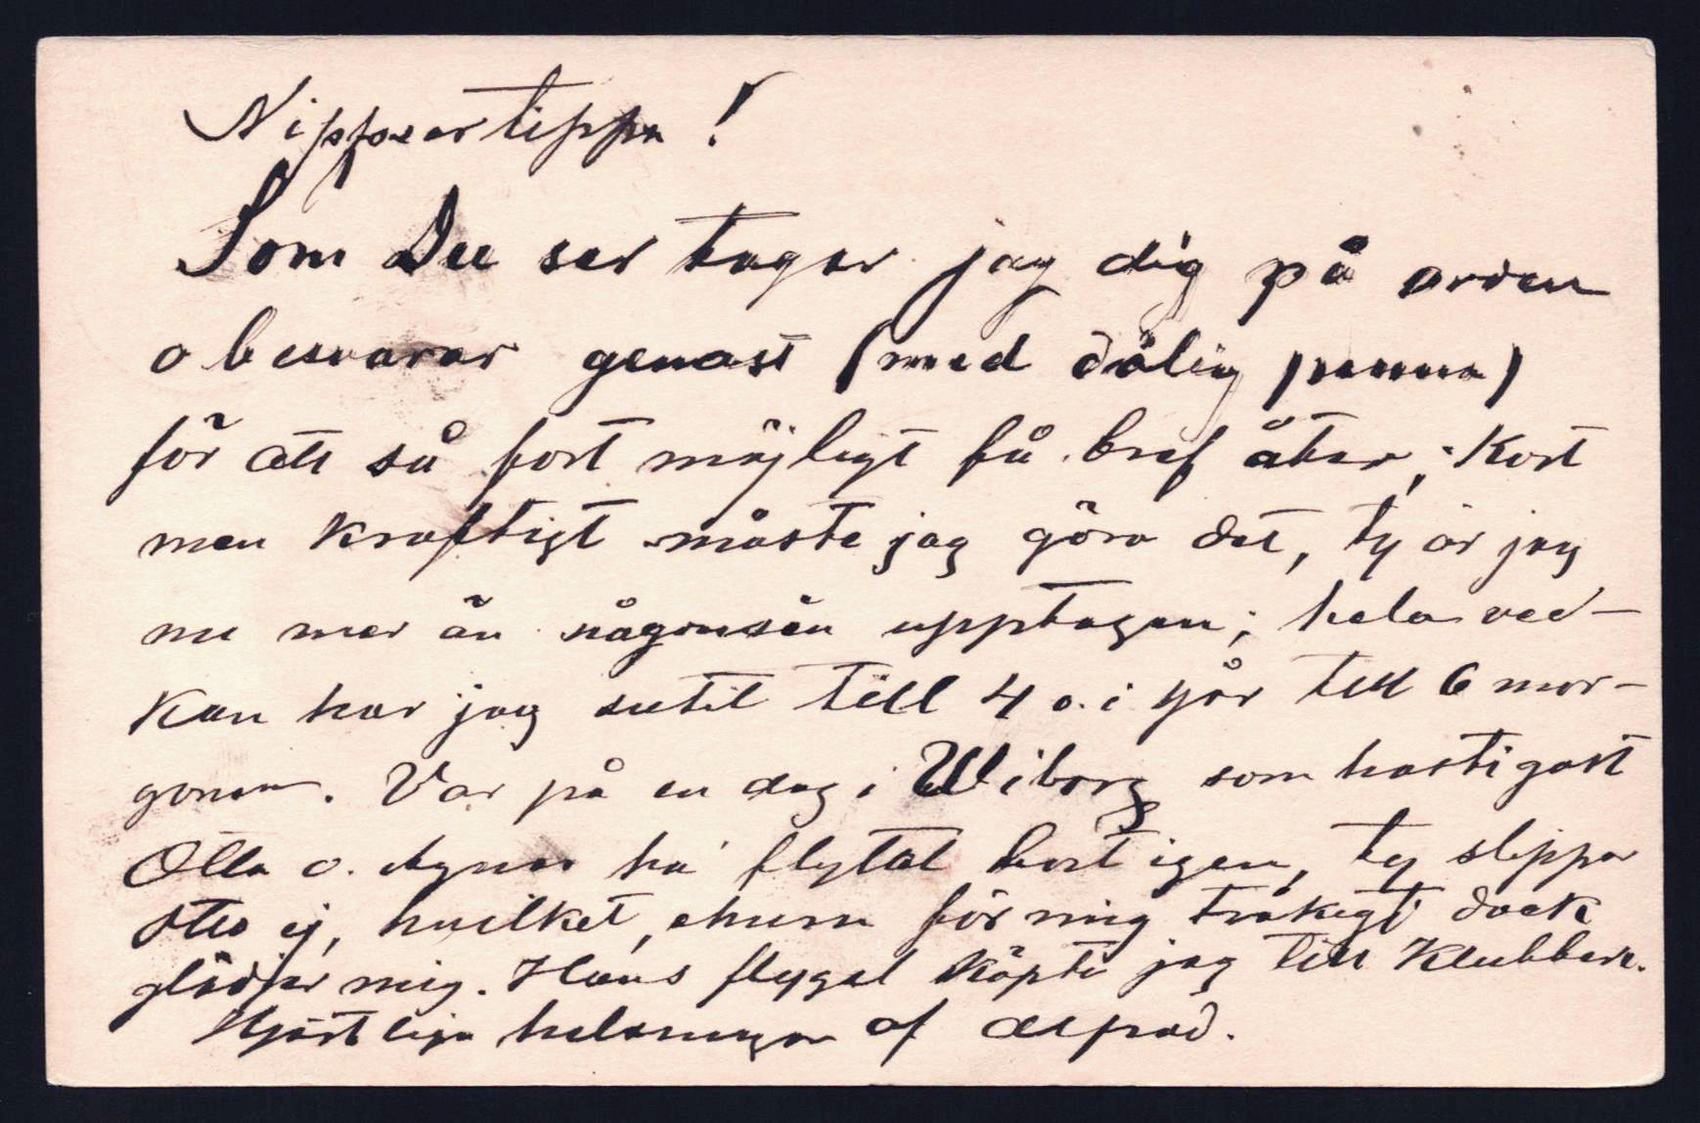 Nippertippa!
Som Du ser tager jag dig på orden
o besvarar genast (med dålig penna)
för att så fort möjligt få bref åter; Kort
men kraftigt måste jag göra det, ty är jag
nu mer än någonsin upptagen; hela vec-
kan har jag sutit till 4 o. i går till 6 mor-
gonen. Var på en dag i Wiborg som hastigast
Olla o. Agnes ha' flyttat bort igen, ty slippa
Otto ej, hvilket, ehuru för mig tråkigt dock
glädjer mig. Hans flygel köpte jag till Klubben.
Hjärtliga helsningar af Alfred.